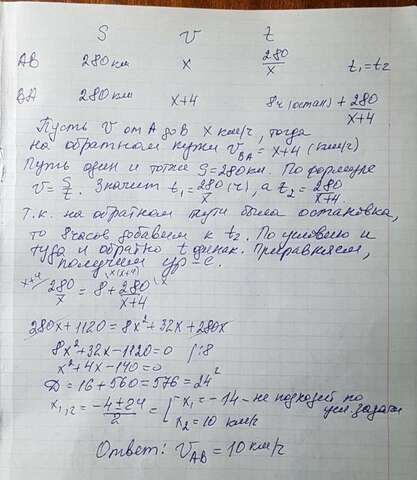 S V t
AB 280 км x 280/x t₁=t₂
BA 280 км x+4 8ч (остан) + 280/x+4
Пусть V от А до В x км/ч, тогда
на обратном пути V BA = x+4 (км/ч)
Путь один и тот же S=280км. По формуле
V=S/t. Значит t₁=280/x (ч), а t₂=280/x+4
Т.к. на обратном пути была остановка,
то 8 часов добавим к t₂. По условию и
туда и обратно t одинак. Приравняем,
получим ур-е.
x+4/ 280/x = 8 /x(x+4) + 280/x+4 \x
280x+1120=8x²+32x+280x
8x²+32x-1120=0 |:8
x²+4x-140=0
D=16+560=576=24²
x₁,₂=-4±24/2=[x₁=-14 - не подходит по
усл. задачи
x₂=10 км/ч
Ответ: V AB = 10 км/ч